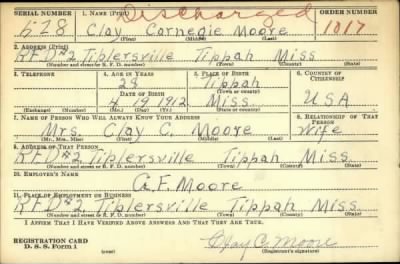 Discharged
SERIAL NUMBER 1. NAME (Print) ORDER NUMBER
528 Clay Carnegie Moore 1017
(First) (Middle) (Last)
2. ADDRESS (Print)
RFD#2 Tiplersville Tippah Miss
(Number and street or R. F. D. number) (Town) (County) (State)
3. TELEPHONE 4. AGE IN YEARS 5. PLACE OF BIRTH 6. COUNTRY OF CITIZENSHIP
28 Tippah
(Town or county)
DATE OF BIRTH
4 19 1912 Miss. USA
(Exchange) (Number) (Mo.) (Day) (Yr.) (State or country)
7. NAME OF PERSON WHO WILL ALWAYS KNOW YOUR ADDRESS 8. RELATIONSHIP OF THAT PERSON
Mrs. Clay C. Moore Wife
(Mr., Mrs., Miss) (First) (Middle) (Last)
9. ADDRESS OF THAT PERSON
RFD#2 Tiplersville Tippah Miss.
(Number and street or R. F. D. number) (Town) (County) (State)
10. EMPLOYER'S NAME
A.F. Moore
11. PLACE OF EMPLOYMENT OR BUSINESS
RFD#2 Tiplersville Tippah Miss
(Number and street or R. F. D. number) (Town) (County) (State)
I AFFIRM THAT I HAVE VERIFIED ABOVE ANSWERS AND THAT THEY ARE TRUE.
REGISTRATION CARD
D. S. S. Form 1 (over) Clay C. Moore
(Registrant's signature)